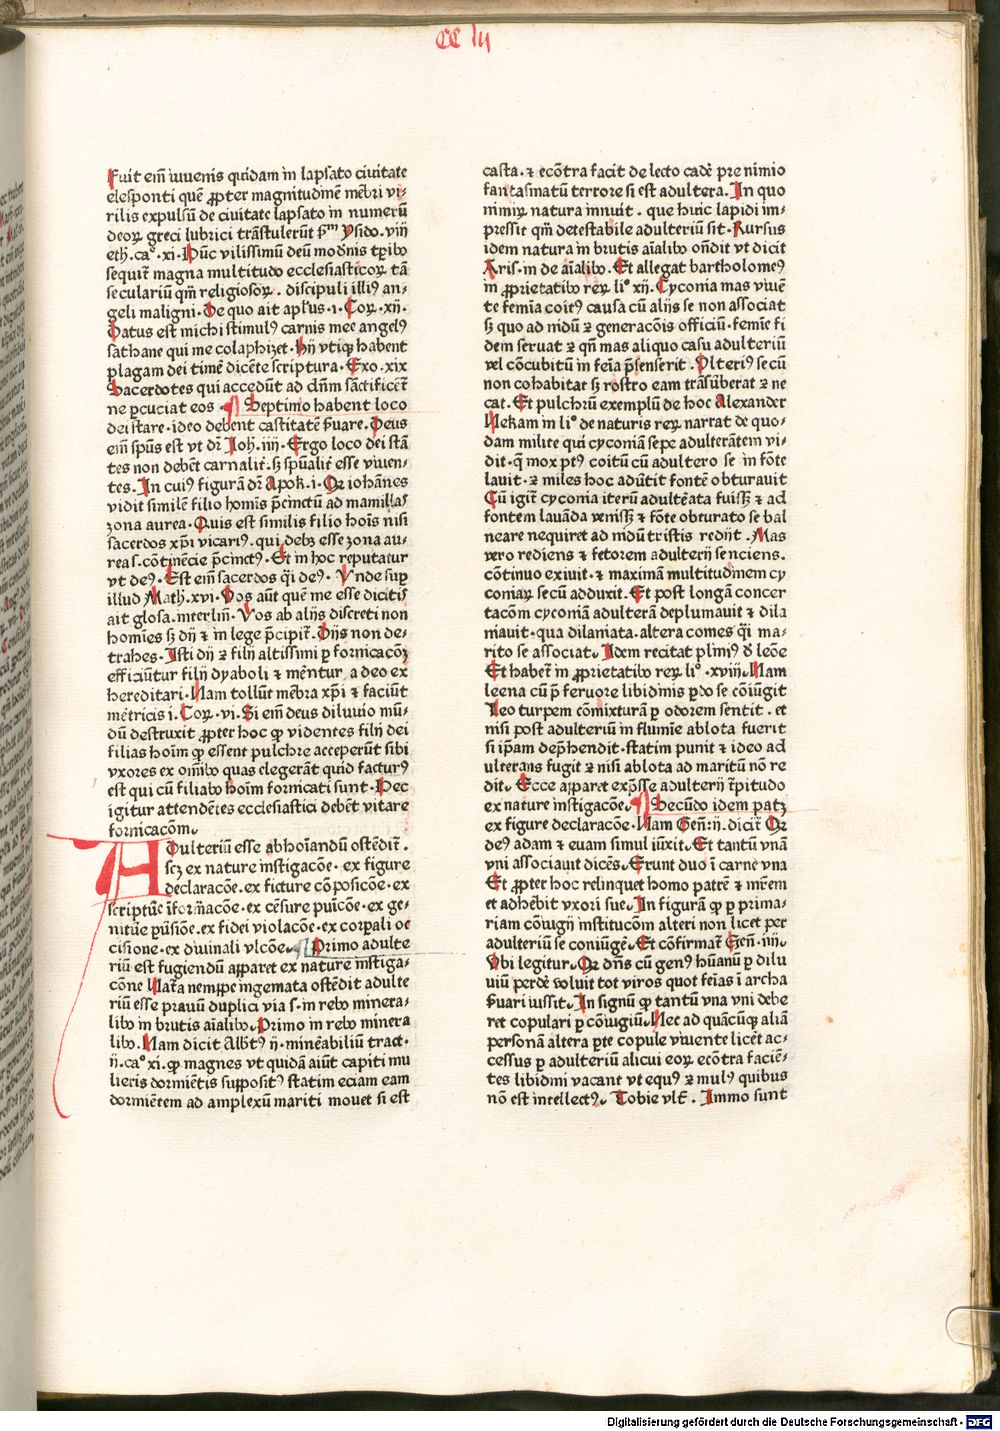 CC lij
Fuit em̄ iuuenis quidam in lapsato ciuitate
elesponti quē ꝓpter magnitudinē mēbri vi⸗
rilis expulsū de ciuitate lapsato in numerū
deoꝝ greci lubrici trāstulerūt ẜm Ysido. viij
eth. ca°. xi. Hūc vilissimū deū modīnis tꝑibꝫ
sequit̄ magna multitudo ecclesiasticoꝝ tā
seculariū qm̄ religiosoꝝ. discipuli illiꝰ an⸗
geli maligni. De quo ait apl'us. i. Coꝝ. xij.
Datus est michi stimulꝰ carnis mee angelꝰ
sathane qui me colaphizet. Hij vtiqꝫ habent
plagam dei timē dicēte scriptura. Exo. xix
Sacerdotes qui accedūt ad dn̄m sāctificēt̄
ne ꝑcuciat eos. ¶ Septimo habent loco
dei stare. ideo debent castitatē ẜuare. Deus
em̄ spūs est vt dr̄ Joh. iiij. Ergo loco dei stā
tes non debēt carnalit̄. sꝫ spūalit̄ esse viuen⸗
tes. In cuiꝰ figurā dr̄ Apok. i. Qꝛ iohānes
vidit similē filio homīs p̄cinctū ad mamillas
zona aurea. Quis est similis filio hoīs nisi
sacerdos xp̄i vicariꝰ. qui debꝫ esse zona au⸗
rea s. cōtinēcie p̄cinctꝰ. Et in hoc reputatur
vt deꝰ. Est em̄ sacerdos q̄i deꝰ. Vnde suꝑ
illud Math. xvi. Vos aūt quē me esse dicitis
ait glosa. interlin̄. Vos ab alijs discreti non
homīes sꝫ dij ⁊ in lege p̄cipit̄. Dijs non de⸗
trahes. Isti dij ⁊ filij altissimi ꝑ fornicacōꝫ
efficiūtur filij dyaboli ⁊ mēntur a deo ex
hereditari. Nam tollūt mēbra xp̄i ⁊ faciūt
mētricis i. Coꝝ. vi. Si em̄ deus diluuio mū⸗
dū destruxit ꝓpter hoc ꝙ videntes filij dei
filias hoīm ꝙ essent pulchre acceperūt sibi
vxores ex oīnibꝫ quas elegerāt quid facturꝰ
est qui cū filiabꝫ hoīm fornicati sunt. Hec
igitur attendētes ecclesiastici debēt vitare
fornicacōm.
ADulteriū esse abhoīandū ostēdit̄.
scꝫ ex nature īnstigacōe. ex figure
declaracōe. ex ficture cōposicōe. ex
scriptūe īform̄acōe. ex cēsure puīcōe. ex ge⸗
nitūe ꝑūsiōne. ex fidei violacōe. ex corꝑali oc
cisione. ex diuinali vlcōe. ¶ Primo adulte
riū est fugiendū apparet ex nature īnstiga⸗
cōne Nat̄a nempe ingemata ostēdit adulte
riū esse prauū duplici via s. in rebꝫ minera⸗
libꝫ in brutis aīalibꝫ. Primo in rebꝫ minera
libꝫ. Nam dicit Albt̄ꝰ ij. minēabiliū tract.
ij. ca° xi. ꝙ magnes vt quidā aiūt capiti mu
lieris dormiētis suppositꝰ statim eciam eam
dormiētem ad amplexū mariti mouet si est
casta. ⁊ ecōtra facit de lecto cadē p̄re nimio
fantasmatū terrore si est adultera. In quo
nimiꝝ natura innuit. que huic lapidi im⸗
pressit qm̄ detestabile adulteriū sit. Rursus
idem natura in brutis aīalibꝫ on̄dit vt dicit
Aris. in de aīalibꝫ. Et allegat bartholomeꝰ
in ꝓprietatibꝫ reꝝ li° xij. Cyconia mas viuē
te femīa coitꝰ causa cū alijs se non associat
sꝫ quo ad nidū ⁊ generacōis officiū. femīe fi
dem seruat ⁊ qn̄ mas aliquo casu adulteriū
vel cōcubitū in fēia p̄senserit. Vlteriꝰ se cū
non cohabitat sꝫ rostro eam trāsūberat ⁊ ne
cat. Et pulchrū exemplū de hoc Alexander
Nekam in li° de naturis reꝝ narrat de quo⸗
dam milite qui cyconiā sepe adulterātem vi⸗
dit. q̄ mox ptꝰ coitū cū adultero se in fōte
lauit. ⁊ miles hoc adūtit fontē obturauit
Cū igit̄ cyconia iterū adultēata fuissꝫ ⁊ ad
fontem lauāda venissꝫ ⁊ fōte obturato se bal
neare nequiret ad nidū tristis redijt. Mas
vero rediens ⁊ fetorem adulterij senciens.
cōtinuo exiuit. ⁊ maximā multitudinem cy
coniaꝝ secū adduxit. Et post longā concer
tacōm cyconiā adulterā deplumauit ⁊ dila
niauit. qua dilaniata. altera comes q̄i ma⸗
rito se associat. Idem recitat pliniꝰ ꝺ leōe
Et habet̄ in ꝓprietatibꝫ reꝝ li°. xviij. Nam
leena cū p̄ feruore libidinis ꝑdo se cōiūgit
Leo turpem cōmixturā ꝑ odorem sentit. et
nisi post adulteriū in flumīe ablota fuerit
si ip̄am dep̄hendit. statim punit ⁊ ideo ad
ulterans fugit ⁊ nisi ablota ad maritū nō re
dit. Ecce apparet exp̄sse adulterij t̄pitudo
ex nature instigacōe. ¶ Secūdo idem patꝫ
ex figure declaracōe. Nam Gen̄: ij. dicit̄ Qꝛ
deꝰ adam ⁊ euam simul iūxit. Et tantū vnā
vni associauit dicēs. Erunt duo ī carne vna
Et ꝓpter hoc relinquet homo patrē ⁊ mr̄em
et adhēbit vxori sue. In figurā ꝙ ꝑ prima⸗
riam cōiugij institucōm alteri non licet per
adulteriū se coniūgē. Et cōfirmat̄ Gen̄. iiij.
Vbi legitur. Qꝛ dn̄s cū genꝰ hūanū ꝑ dilu
uiū perdē voluit tot viros quot feīas ī archa
ẜuari iussit. In signū ꝙ tantū vna vni debe
ret copulari ꝑ cōiugiū. Nec ad quācūqꝫ aliā
personā altera ꝑte copule viuente licēt ac⸗
cessus ꝑ adulteriū alicui eoꝝ ecōtra faciē⸗
tes libidini vacant vt equꝰ ⁊ mulꝰ quibus
nō est intellectꝰ. Tobie vlt̄. Immo sunt
Digitalisierung gefördert durch die Deutsche Forschungsgemeinschaft - DFG